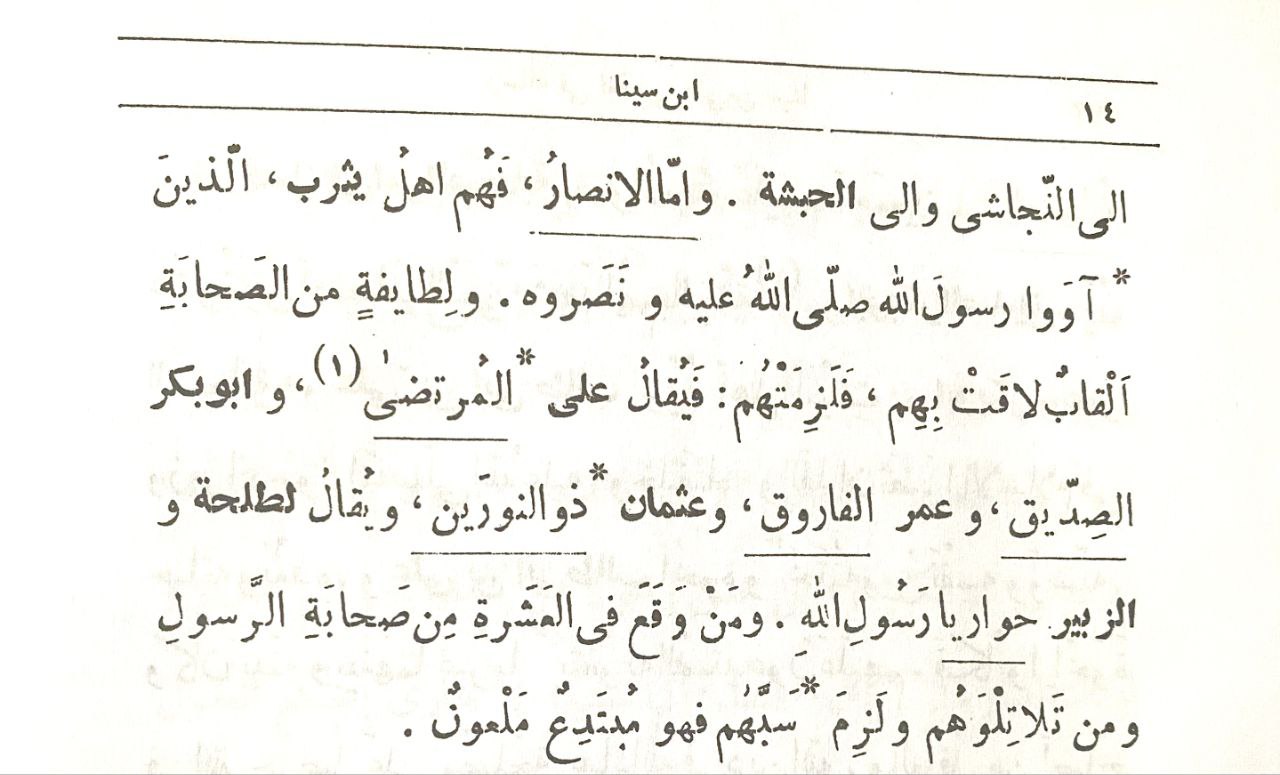 ١٤
ابن سينا
الى النّجاشى والى الحبشة . وامّا الانصارُ ، فَهُم اهلُ يثرب ، الّذينَ
* آوَوا رسولَ الله صلّى اللهُ عليه و نَصَروه . و لِطايفةٍ من الصَحابَةِ
اَلْقابٌ لاقَتْ بِهِم ، فَلَزِمَتْهُم : فَيُقالُ على * المُرتضىٰ (١) ، و ابوبكر
الصِدّيق ، و عمر الفاروق ، وعثمان * ذوالنورَين ، ويُقالُ لطلحة و
الزبير حواريا رَسُولِ اللهِ . ومَنْ وَقَعَ فى العَشَرةِ مِن صَحابَةِ الرَّسولِ
ومن تَلا تِلْوَهُم ولَزِمَ * سَبَّهُم فهو مُبتَدِعٌ مَلْعونٌ .